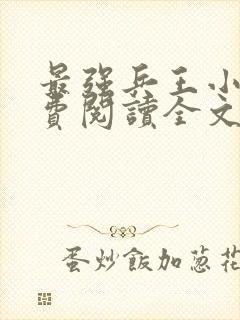 最強兵王小
費閱讀全文
蛋炒飯加葱花